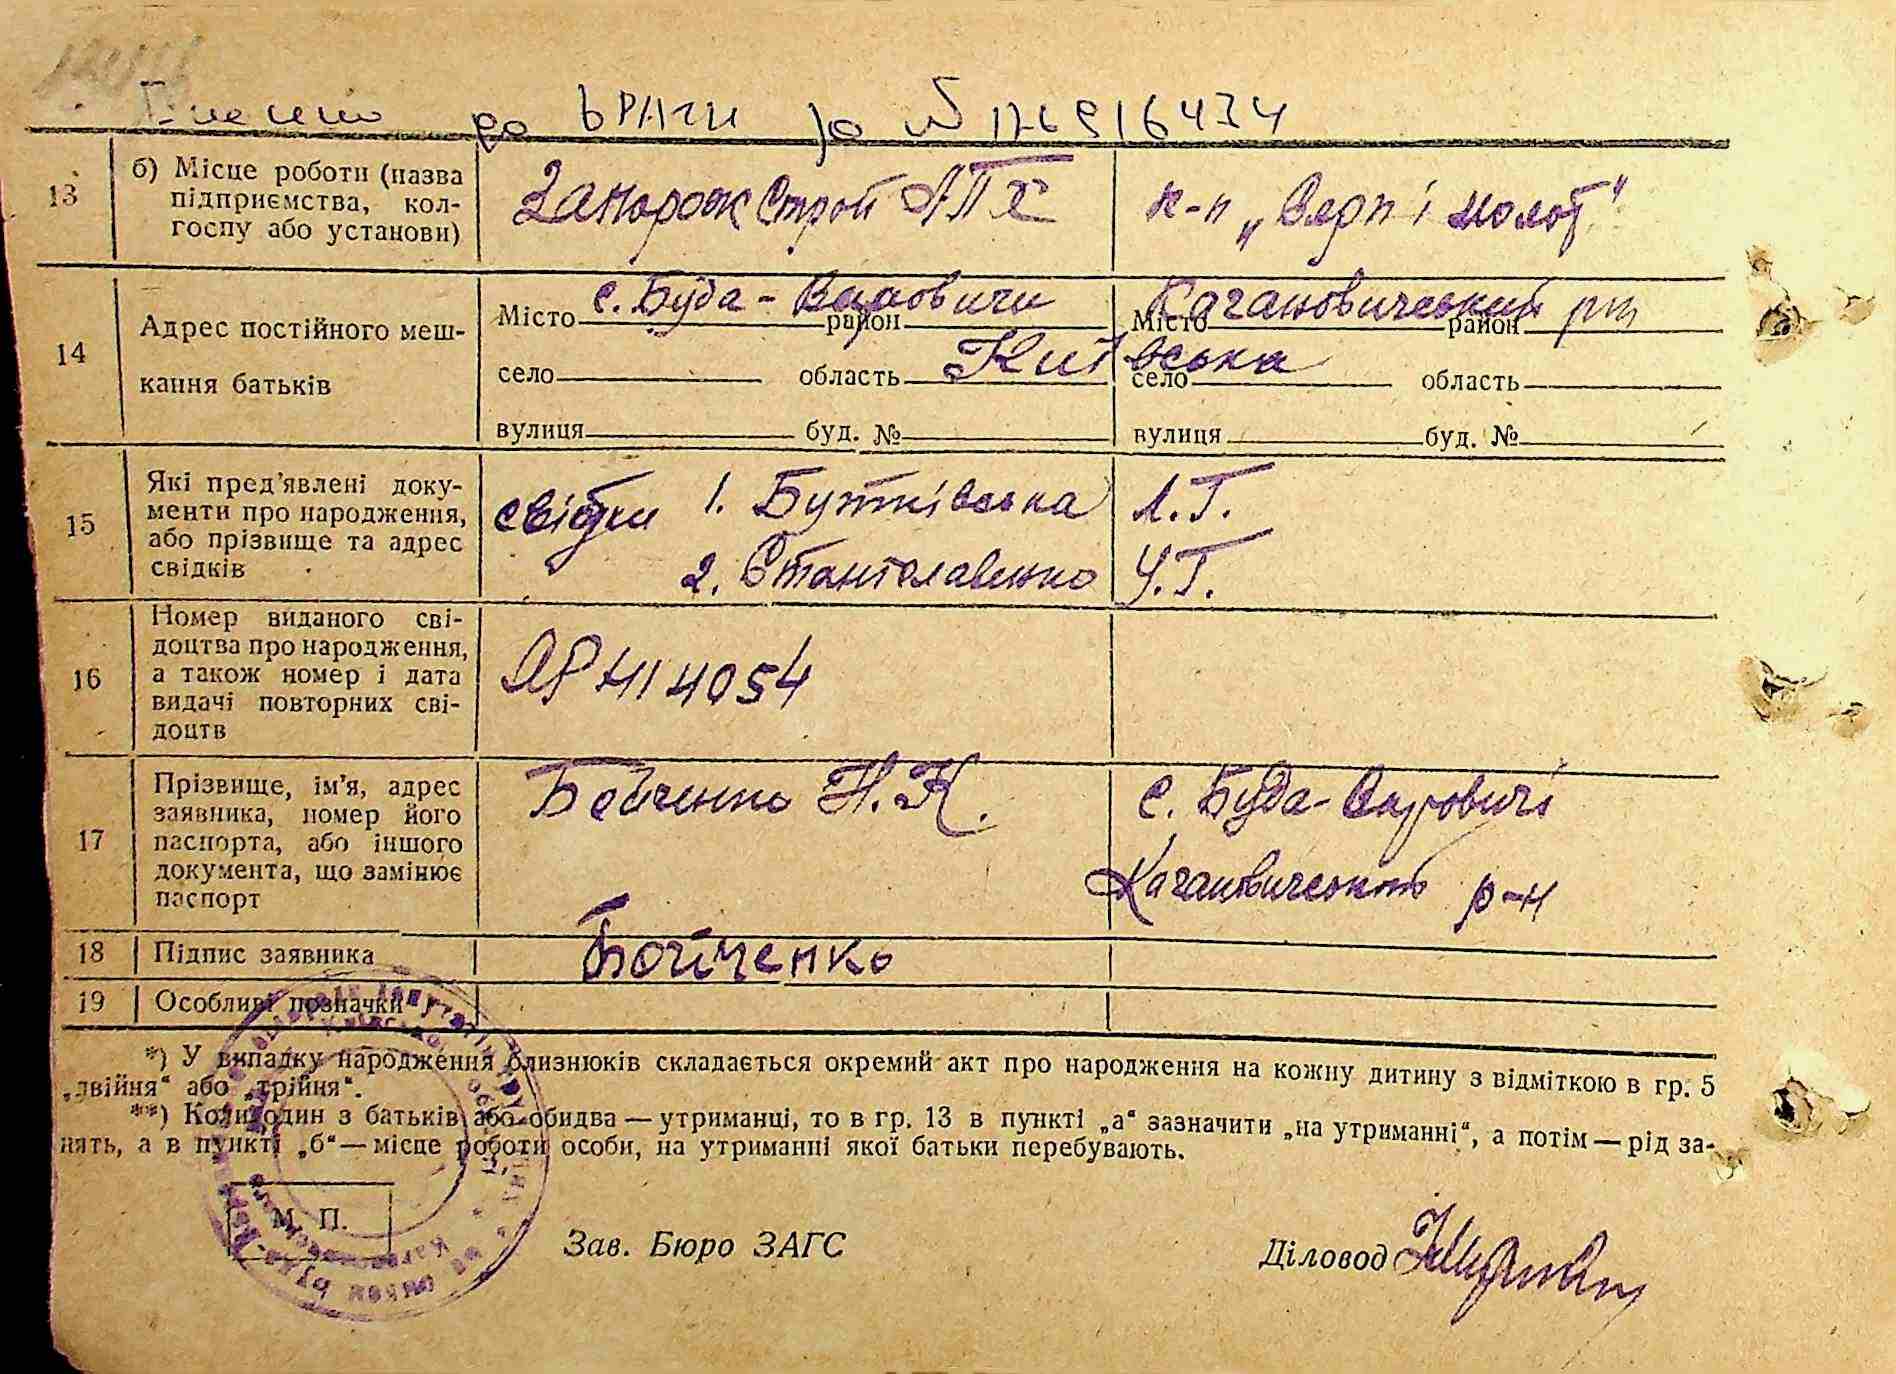 Внесено до ДРАЦГ за №
13 б) Місце роботи (назва підприємства, кол-госпу або установи) ЗапорожСтрой АТХ к-п „Серп і молот"
14 Адрес постійного меш-кання батьків
Місто с. Буда-Варовичи район Місто Кагановический район рн
село область Київська село область
вулиця буд. № вулиця буд. №
15 Які пред'явлені доку-менти про народження, або прізвище та адрес свідків
свідки 1. Бутківська Л.Г.
2. Станіславенко У.Г.
16 Номер виданого сві-доцтва про народження, а також номер і дата видачі повторних сві-доцтв
17 Прізвище, ім'я, адрес заявника, номер його паспорта, або іншого документа, що замінює паспорт
Бойченко Н.К. с. Буда-Варовичі
р-н
18 Підпис заявника Бойченко
19 Особливі позначки
*) У випадку народження близнюків складається окремий акт про народження на кожну дитину з відміткою в гр. 5
„двійня" або „трійня".
**) Коли один з батьків або обидва — утриманці, то в гр. 13 в пункті „а" зазначити „на утриманні", а потім — рід за-
нять, а в пункті „б" — місце роботи особи, на утриманні якої батьки перебувають.
М. П.
Зав. Бюро ЗАГС Діловод